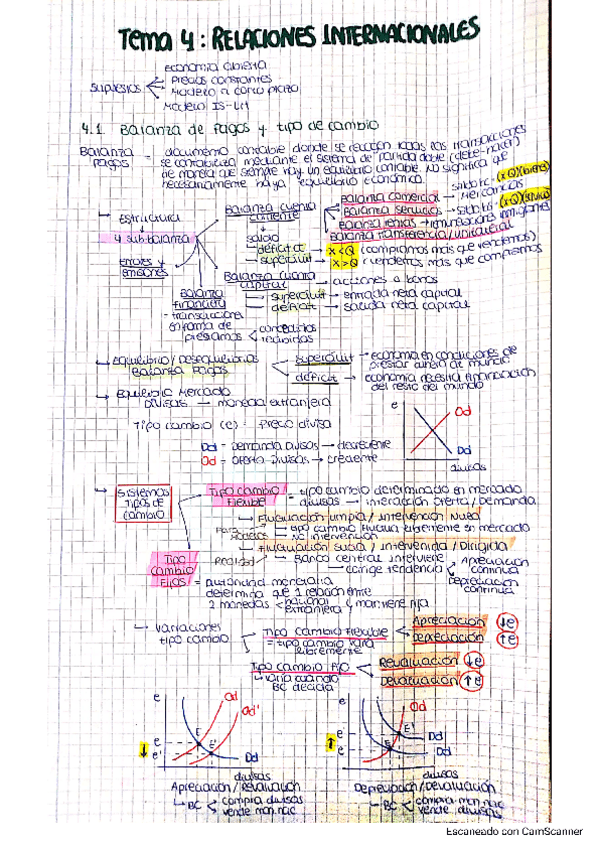 Tema 4: RELACIONES INTERNACIONALES
Supuestos
economía abierta
Precios constantes
Modelo a corto plazo
Modelo IS-LM
4.1 Balanza de Pagos y tipo de cambio
Balanza Pagos = documento contable donde se recogen todas las transacciones
se contabiliza mediante el sistema de partida doble (debe-haber)
de manera que siempre hay un equilibrio contable. No significa que
necesariamente haya equilibrio económico.
Estructura
4 sub balanza
errores y omisiones
Balanza cuenta corriente
Balanza comercial → mercancías
Balanza servicios
Balanza rentas
Balanza transferencia/unilateral
saldo
déficit → X<Q (compramos más que vendemos)
superávit → X>Q (vendemos más que compramos
Balanza cuenta capital → acciones o bonos
superávit → entrada neta capital
déficit → salida neta capital
Balanza financiera
= transacciones
en forma de
préstamos
concedidos
recibidos
Equilibrio/Desequilibrios Balanza Pagos
superávit → economía en condiciones de
prestar dinero al mundo
déficit → economía necesita financiación
del resto del mundo
Equilibrio Mercado
Divisas → moneda extranjera
Tipo cambio (e) = Precio divisa
Dd = demanda divisas → decreciente
Od = oferta divisas → creciente
e
Od
Dd
divisas
Sistemas
Tipos de
cambio
Tipo cambio Flexible = tipo cambio determinado en mercado
divisas → interacción oferta/Demanda
Fluctuación limpia/Intervención Nula
Para modelos
tipo cambio fluctúa libremente en mercado
NO intervención
Fluctuación sucia/intervenida/Dirigida
Realidad
Banco central interviene
corrige tendencia
Apreciación continua
Depreciación continua
Tipo
Cambio
Fijos = autoridad monetaria
determina que la relación entre
2 monedas
nacional
extranjera
y mantiene fija
Variaciones
tipo cambio
Tipo cambio flexible
= tipo cambio varía
libremente
Apreciación ↓e
Depreciación ↑e
Tipo cambio Fijo
varía cuando
BC decida
Revaluación ↓e
Devaluación ↑e
e
Od
Od'
e
E
e'
E'
Dd
divisas
Apreciación/Revaluación
BC
compra divisas
vende mon.nac
e
Od
e
E'
e
E
Dd
Dd
divisas
Depreciación/Devaluación
BC
compra mon.nac
vende divisas
Escaneado con CamScanner